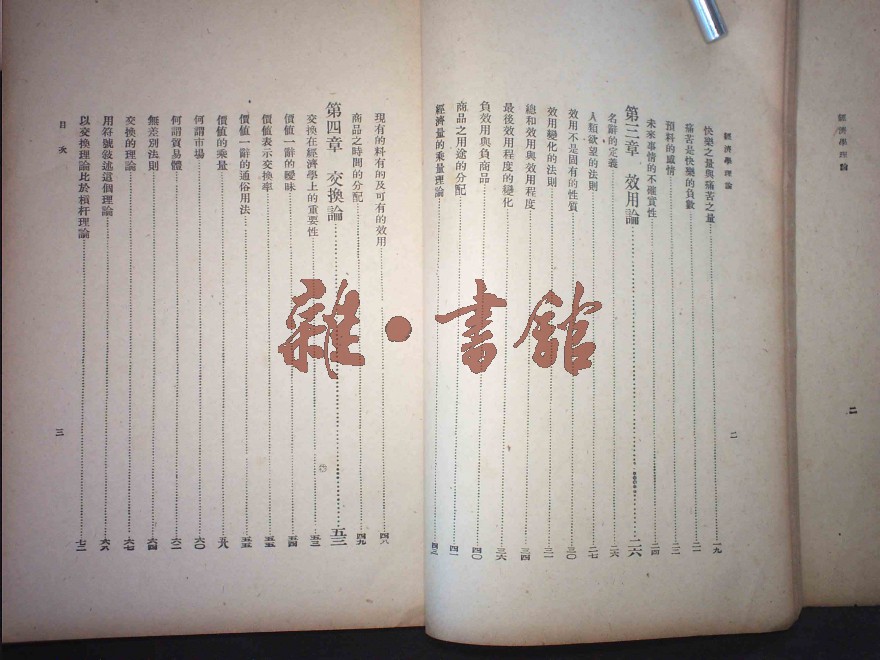 經濟學理論
二
經濟學理論
快樂之量與痛苦之量 一九
痛苦是快樂的負數 二一
預料的感情 二二
未來事情的不確實性 二四
第三章 效用論 二六
名辭的定義 二六
人類欲望的法則 二七
效用不是固有的性質 三〇
效用變化的法則 三一
總和效用與效用程度 三四
最後效用程度的變化 三六
負效用與負商品 四〇
商品之用途的分配 四一
經濟量的乘量理論
二
現有的料有的及可有的效用 四八
商品之時間的分配 四九
第四章 交換論 五三
交換在經濟學上的重要性 五三
價值一辭的曖昧 五四
價值表示交換率 五五
價值一辭的通俗用法 五五
價值的乘量 五八
何謂市場 六〇
何謂貿易體 六二
無差別法則 六四
交換的理論 六七
用符號敍述這個理論 六八
以交換理論比於槓杆理論 七二
目次
三
雜·書館